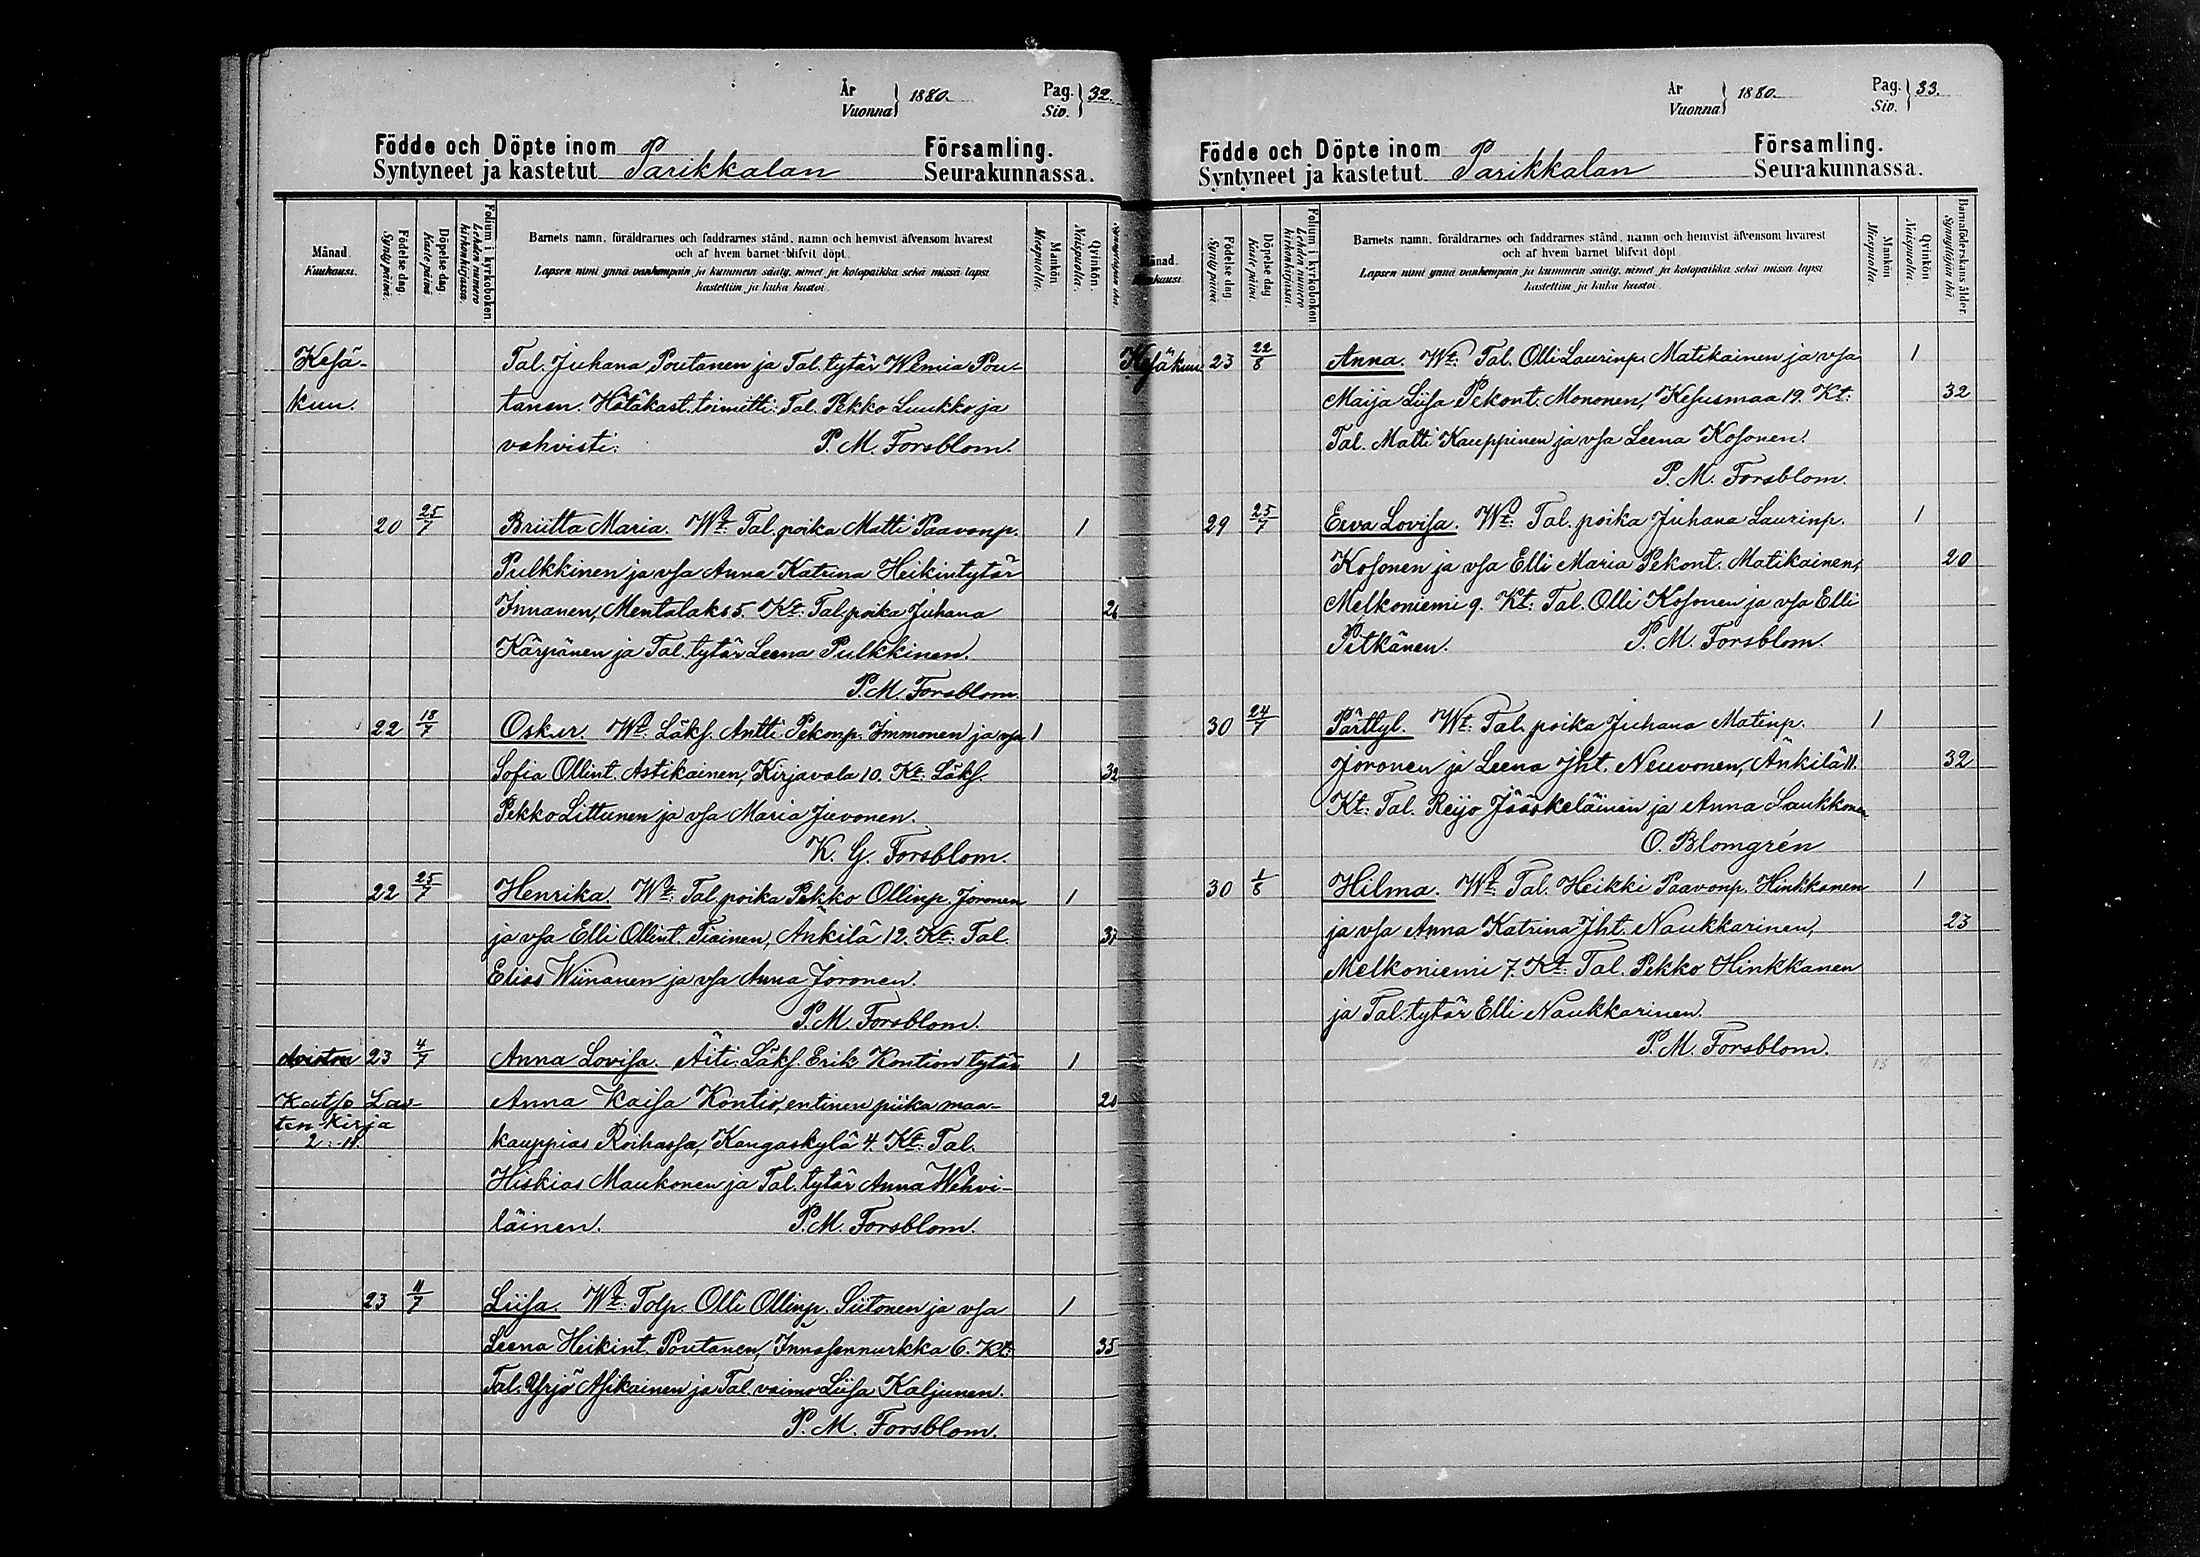 År Vuonna } 1880. Pag. Siv. } 32.
Födde och Döpte inom Församling.
Syntyneet ja kastetut Parikkalan Seurakunnassa.
Månad. Kuukausi.
Födelse dag. Syntypäivä.
Döpelse dag Kaste päivä
Folium i kyrkoboken. Lehden numero kirkonkirjassa.
Barnets namn, föräldrarnes och faddrarnes stånd, namn och hemvist äfvensom hvarest
och af hvem barnet blifvit döpt.
Lapsen nimi ynnä vanhempain ja kummein sääty, nimet ja kotopaikka sekä missä lapsi
kastettiin ja kuka kastoi.
Mankön Miespuolia.
Qvinkön. Naispuolia.
Kesä- Tal. Juhana Poutanen ja Tal. tytär Wemia Pou-
kuu. tanen. Hätäkast. toimitti Tal. Pekko Luukko ja
vahvisti: P. M. Forsblom.
20 25/7 Briitta Maria. Wt: Tal. poika Matti Paavonp. 1
Pulkkinen ja vsa Anna Katrina Heikintytär
Innanen, Mentalaks 5. Kt: Tal. poika Juhana 26
Kärpänen ja Tal. tytär Leena Pulkkinen.
P. M. Forsblom.
22 18/7 Oskur. Wt: Läks. Antti Pekonp. Immonen ja vsa 1
Sofia Ollint. Astikainen, Kirjavala 10. Kt: Läks. 32
Pekko Littunen ja vsa Maria Jievonen.
K. G. Forsblom.
22 25/7 Henrika. Wt: Tal. poika Pekko Ollinp. Joronen 1
ja vsa Elli Ollint. Tiainen, Änkilä 12. Kt: Tal.
Elias Wiinanen ja vsa Anna Joronen.
P. M. Forsblom.
Avioton 23 4/7 Anna Lovisa. Äiti: Läks. Erik Kontion tytär 1
Katso Las- Anna Kaisa Kontio, entinen piika maa-
ten kirja kauppias Roihassa, Kangaskylä 4. Kt: Tal.
Hiskias Maukonen ja Tal. tytär Anna Wehvi-
läinen. P. M. Forsblom.
23 11/7 Liisa. Wt: Tolp. Olli Ollinp. Siitonen ja vsa 1
Leena Heikint. Poutanen, Innasennurkka 6. Kt: 35
Tal. Yrjö Asikainen ja Tal. vaimo Liisa Kaljunen.
P. M. Forsblom.
År Vuonna } 1880. Pag. Siv. } 33.
Födde och Döpte inom Församling.
Syntyneet ja kastetut Parikkalan Seurakunnassa.
Månad.
Födelse dag. Syntypäivä.
Döpelse dag Kaste päivä.
Folium i kyrkoboken. Lehden numero kirkonkirjassa.
Barnets namn, föräldrarnes och faddrarnes stånd, namn och hemvist äfvensom hvarest
och af hvem barnet blifvit döpt
Lapsen nimi ynnä vanhempain ja kummein sääty, nimet ja kotopaikka sekä missä lapsi
kastettiin ja kuka kastoi.
Mankön Miespuolia.
Qvinkön. Naispuolia.
Barnaföderskans ålder. Synnyttäjän ikä.
Kesäkuu 23 22/8 Anna. Wt: Tal. Olli Laurinp. Matikainen ja vsa 1
Maija Liisa Pekont. Mononen, Kesusmaa 19. Kt: 32
Tal. Matti Kauppinen ja vsa Leena Kosonen.
P. M. Forsblom.
29 25/7 Eeva Lovisa. Wt: Tal. poika Juhana Laurinp. 1
Kosonen ja vsa Elli Maria Pekont. Matikainen, 20
Melkoniemi 9. Kt: Tal. Olli Kosonen ja vsa Elli
Pitkänen. P. M. Forsblom.
30 24/7 Pärttyl. Wt: Tal. poika Juhana Matinp. 1
Joronen ja Leena Jht. Neuvonen, Änkilä 11. 32
Kt: Tal. Reijo Jääskeläinen ja Anna Saukkonen
O. Blomgrén
30 1/8 Hilma. Wt: Tal. Heikki Paavonp. Hinkkanen 1
ja vsa Anna Katrina Jht. Naukkarinen, 23
Melkoniemi 7. Kt: Tal. Pekko Hinkkanen
ja Tal. tytär Elli Naukkarinen.
P. M. Forsblom.